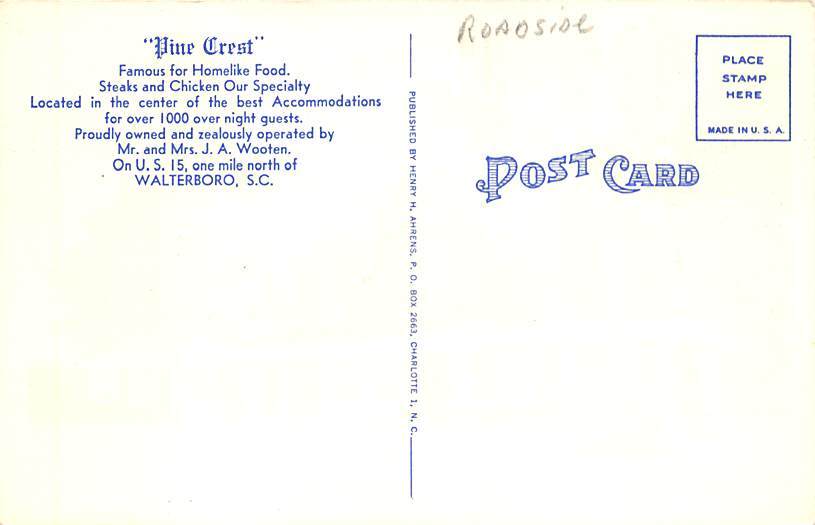 "Pine Crest"
Famous for Homelike Food.
Steaks and Chicken Our Specialty
Located in the center of the best Accommodations
for over 1000 over night guests.
Proudly owned and zealously operated by
Mr. and Mrs. J. A. Wooten.
On U. S. 15, one mile north of
WALTERBORO, S.C.
PUBLISHED BY HENRY H. AHRENS, P. O. BOX 2663, CHARLOTTE 1, N. C.
ROADSIDE
PLACE
STAMP
HERE
MADE IN U. S. A.
POST CARD